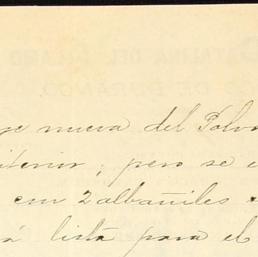 CATALINA DEL ALAMO
DE DURANGO.
nueva del Polvo
terior; pero se
con 2 albañiles
á lista para el